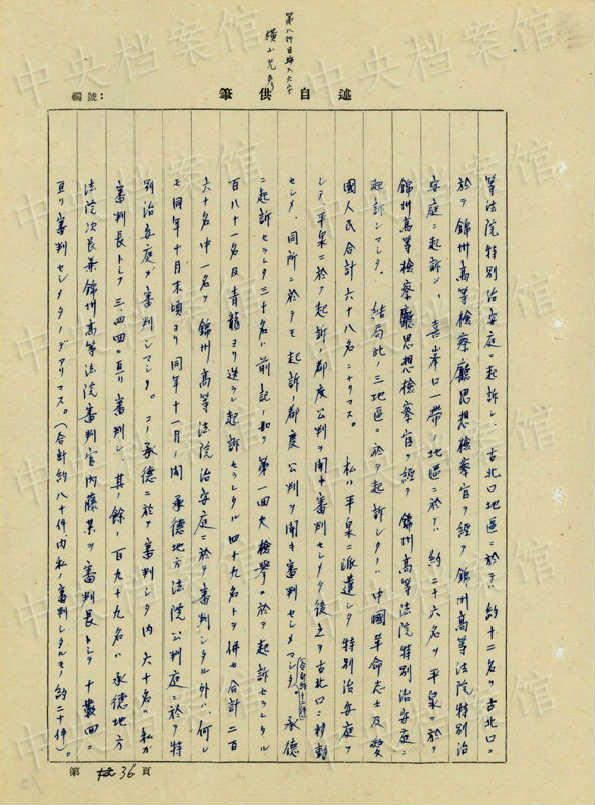 第八行目挿入六字
横山光彦
筆供自述
編號：
等法院特別治安庭ニ起訴シ、古北口地區ニ於テハ約十二名ヲ古北口ニ
於テ錦州高等檢察廳思想檢察官ヲ經テ錦州高等法院特別治
安庭ニ起訴シ、喜峯口一帶ノ地區ニ於テハ約二十六名ヲ平泉ニ於テ
錦州高等檢察廳思想檢察官ヲ經テ錦州高等法院特別治安庭ニ
起訴シマシタ。結局此ノ三地區ニ於テ起訴シタノハ中國革命志士及愛
國人民合計六十八名ニナリマス。私ハ平泉ニ派遣シタ特別治安庭ヲ
シテ、平泉ニ於テ起訴ノ都度公判ヲ開キ審判セシメタ後之ヲ古北口ニ移動
セシメ、同所ニ於テモ起訴ノ都度公判ヲ開キ審判セシメマシタ。承德
ニ起訴セラレタ三十名ハ前記ノ如ク第一回大檢擧ニ於テ起訴セラレタル
百八十一名及青龍ヨリ送ラレ起訴セラレタル四十九名トヲ併セ合計二百
六十名中一名ヲ錦州高等法院治安庭ニ於テ審判シタル外ハ、何レ
モ同年十月末頃ヨリ同年十一月ノ間承德地方法院公判庭ニ於テ特
別治安庭ガ審判シマシタ。フノ承德ニ於テ審判シタ内六十名ハ私ガ
審判長トシテ三、四回ニ亘リ審判シ、其ノ餘ノ百九十九名ハ承德地方
法院次長兼錦州高等法院審判官内藤某ヲ審判長トシテ十數回ニ
亘リ審判セシメタノデアリマス。（合計約八十件、内私ノ審判シタルモノ約二十件）。
第36頁
中央档案馆